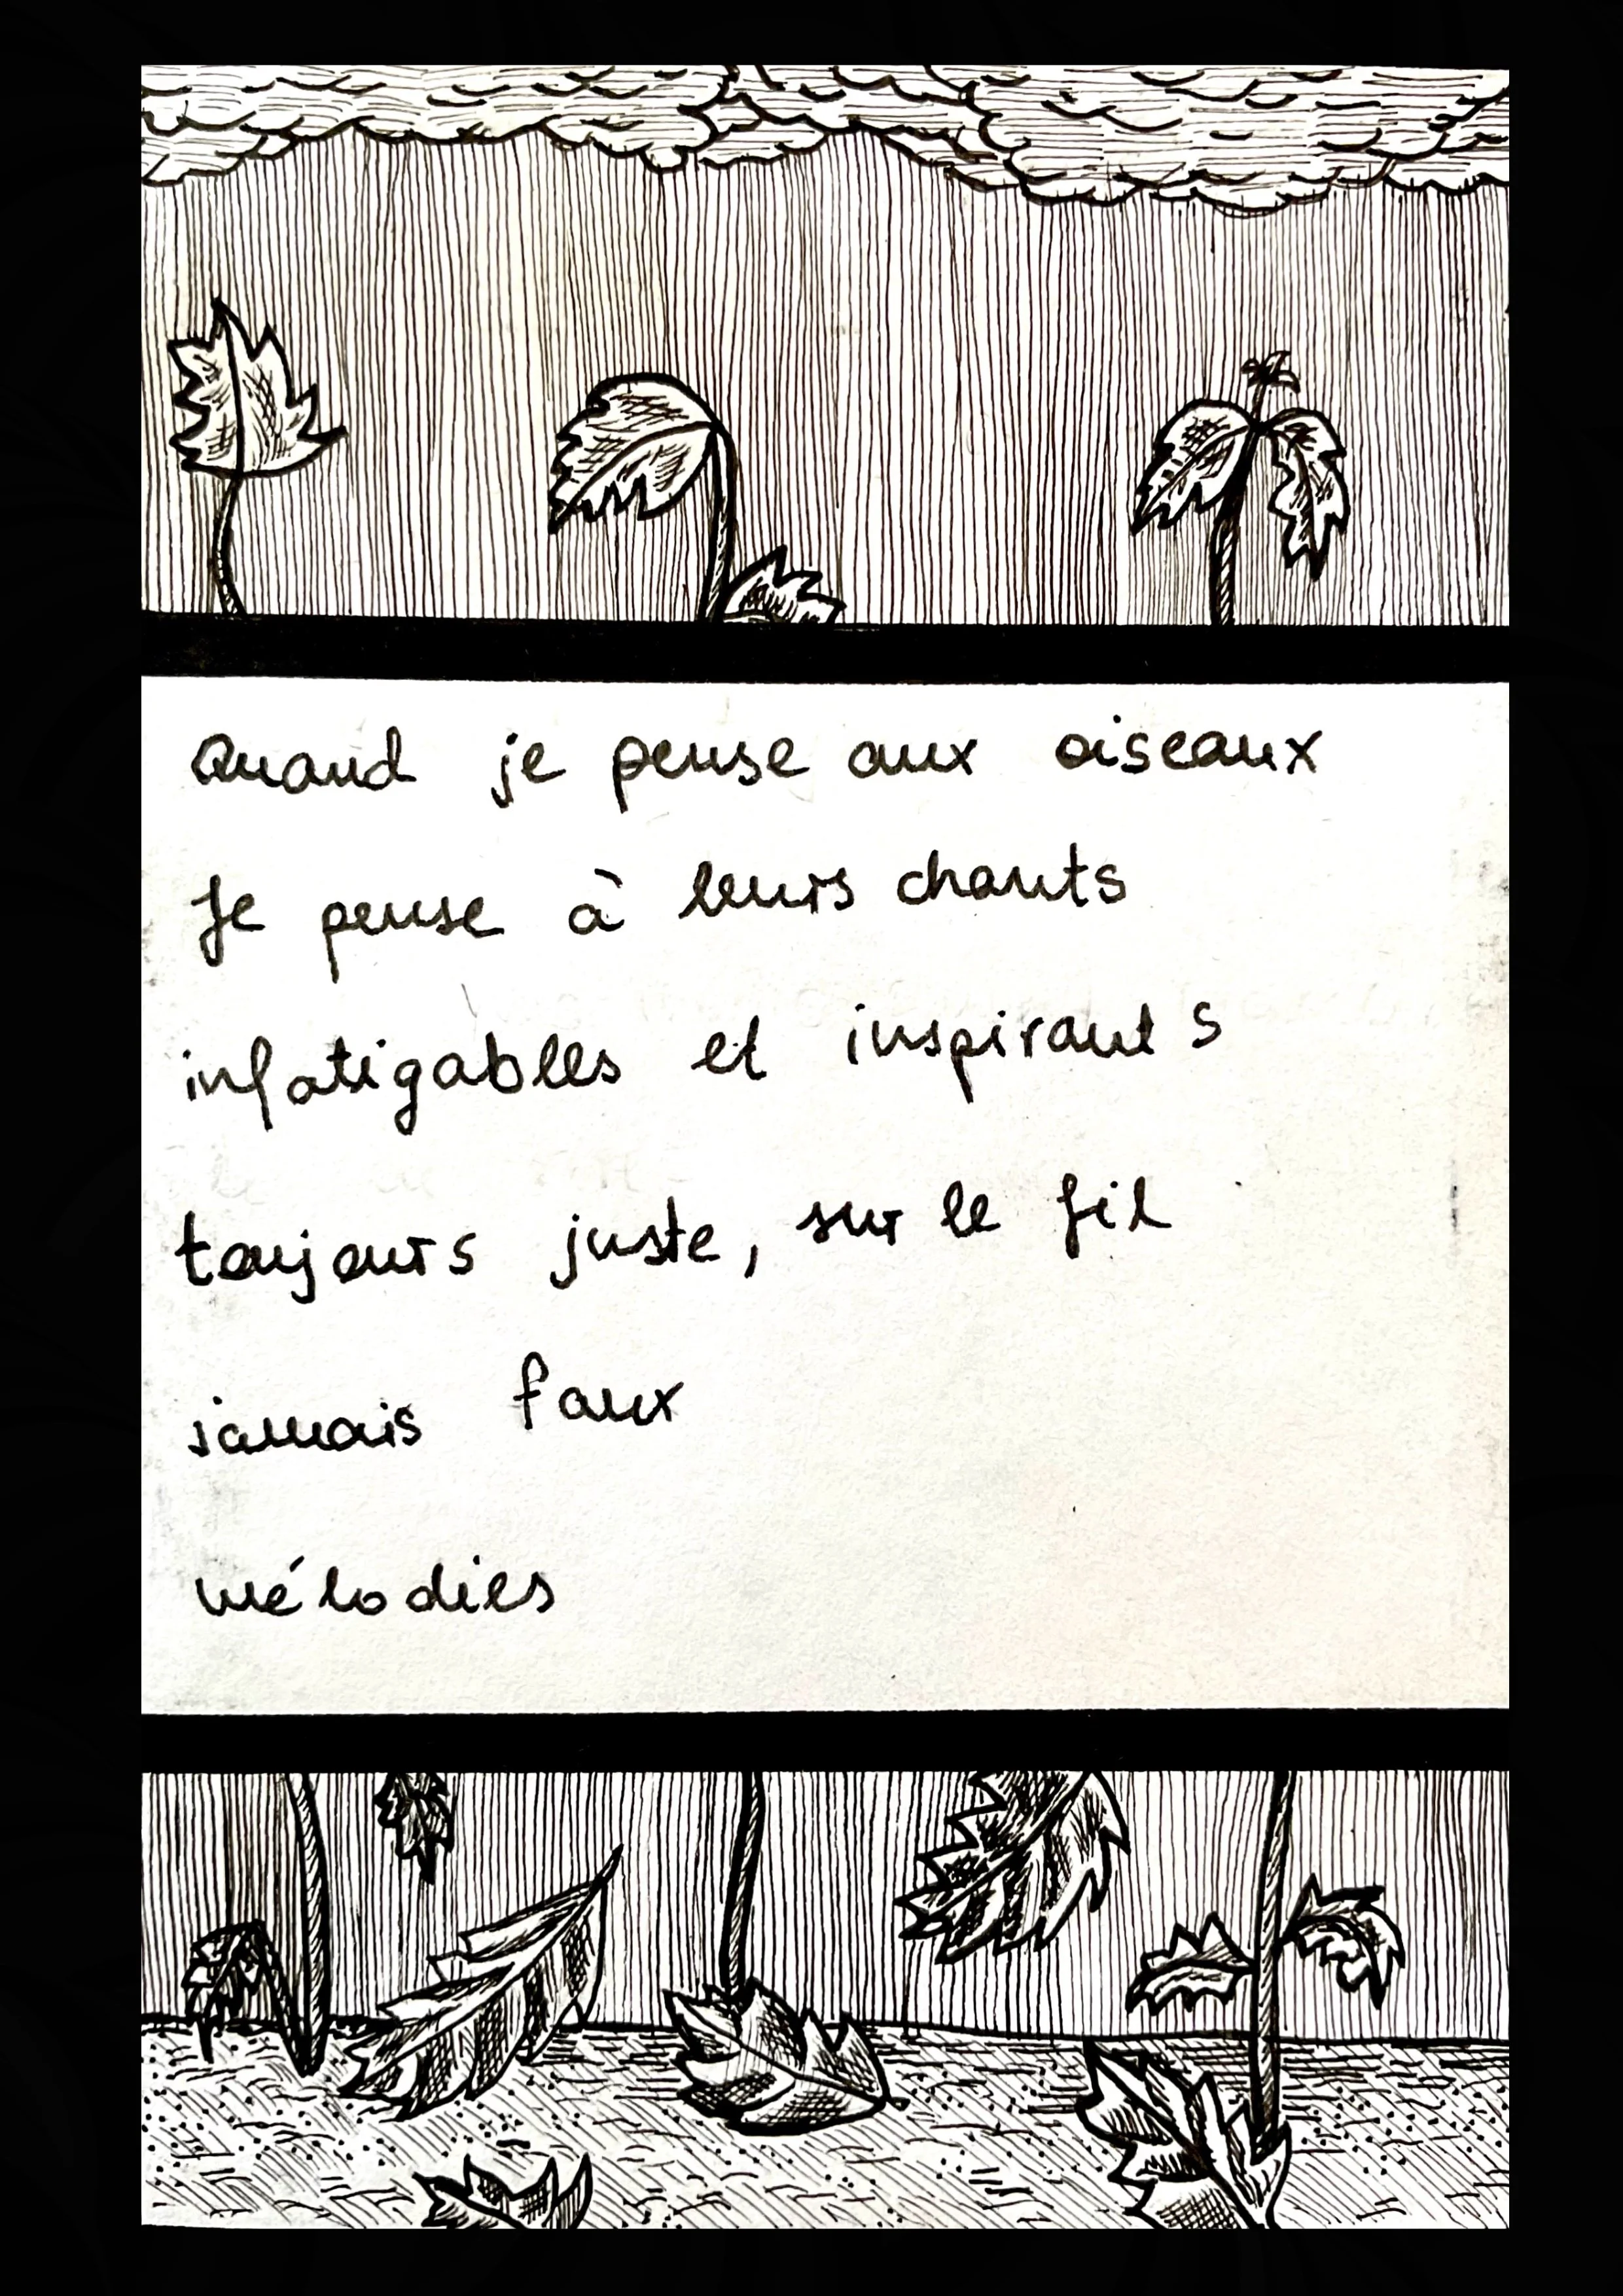 Quand je pense aux oiseaux
Je pense à leurs chants
infatigables et inspirants
toujours juste, sur le fil
jamais faux
mélodies